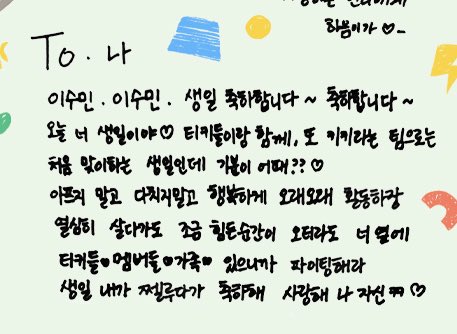 하쯤이가 ♡_
To. 나
이수민. 이수민. 생일 축하합니다~ 축하합니다~
오늘 너 생일이야♡ 티키들이랑 함께, 또 키키라는 팀으로는
처음 맞이하는 생일인데 기분이 어때?? ♡
아프지 말고 다치지말고 행복하게 오래오래 활동하장
열심히 살다가도 조금 힘든순간이 오더라도 너 옆에
티키들♥멤버들♥가족♥ 있으니까 파이팅해라
생일 내가 쩰루다가 축하해 사랑해 나 자신 ㅋㅋ ♡